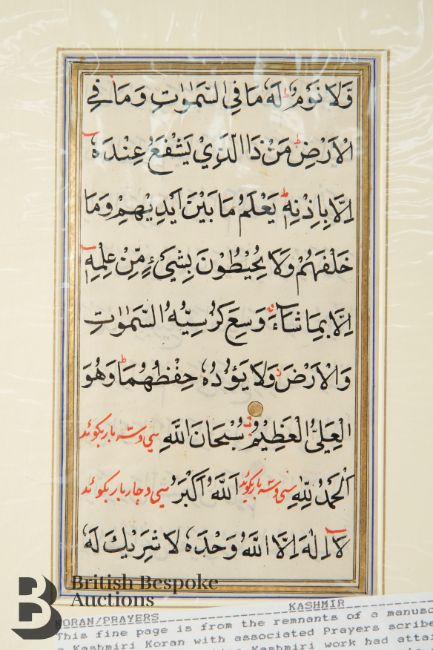 وَّلَا نَوْمٌ لَهٗ مَا فِی السَّمٰوٰتِ وَمَا فِی
الْاَرْضِ مَنْ ذَا الَّذِیْ یَشْفَعُ عِنْدَهٗ
اِلَّا بِاِذْنِهٖ یَعْلَمُ مَا بَیْنَ اَیْدِیْهِمْ وَمَا
خَلْفَهُمْ وَلَا یُحِیْطُوْنَ بِشَیْءٍ مِّنْ عِلْمِهٖ
اِلَّا بِمَا شَآءَ وَسِعَ كُرْسِیُّهُ السَّمٰوٰتِ
وَالْاَرْضَ وَلَا یَؤُدُهٗ حِفْظُهُمَا وَهُوَ
الْعَلِیُّ الْعَظِیْمُ سُبْحَانَ اللّٰهِ سی وسه بار بگوید
اَلْحَمْدُ لِلّٰهِ سی وسه بار بگوید اَللّٰهُ اَكْبَرُ سی وچهار بار بگوید
لَا اِلٰهَ اِلَّا اللّٰهُ وَحْدَهٗ لَا شَرِیْكَ لَهٗ
British Bespoke
Auctions
KORAN/PRAYERS KASHMIR
This fine page is from the remnants of a manus
a Kashmiri Koran with associated Prayers scribe
Kashmiri work had attai